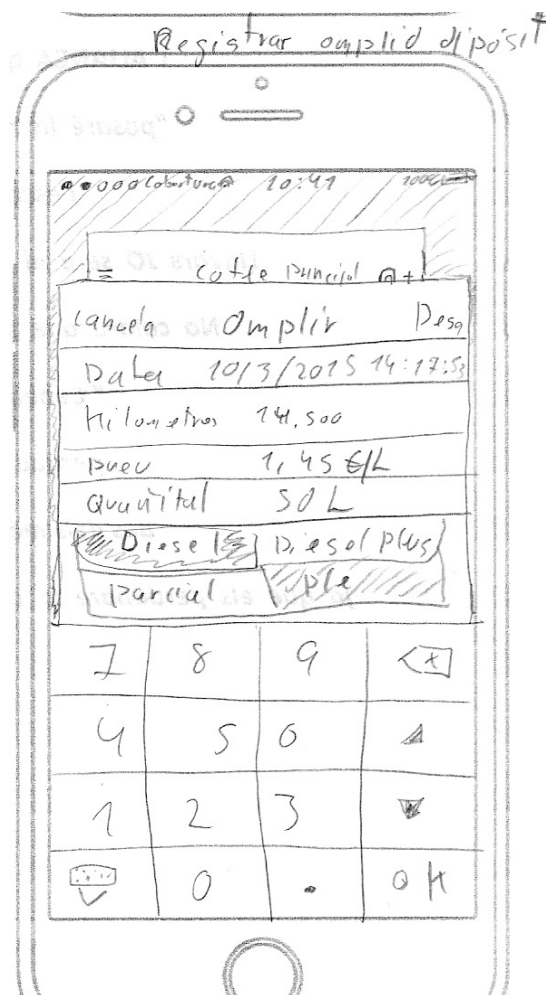 Registrar omplid dipòsit
Cobertura 10:41 100%
Cotxe principal +
Cancela Omplir Desa
Data 10/3/2015 14:17:53
Kilometros 141.500
preu 1,45 €/L
Quantitat 50 L
Diesel Diesel plus
Parcial ple
7 8 9 X
4 5 6
1 2 3
0 . OK